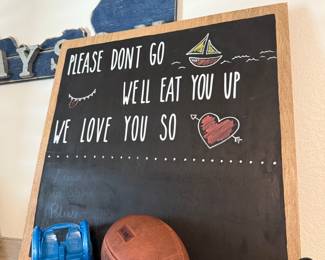 PLEASE DONT GO
WE'LL EAT YOU UP
WE LOVE YOU SO